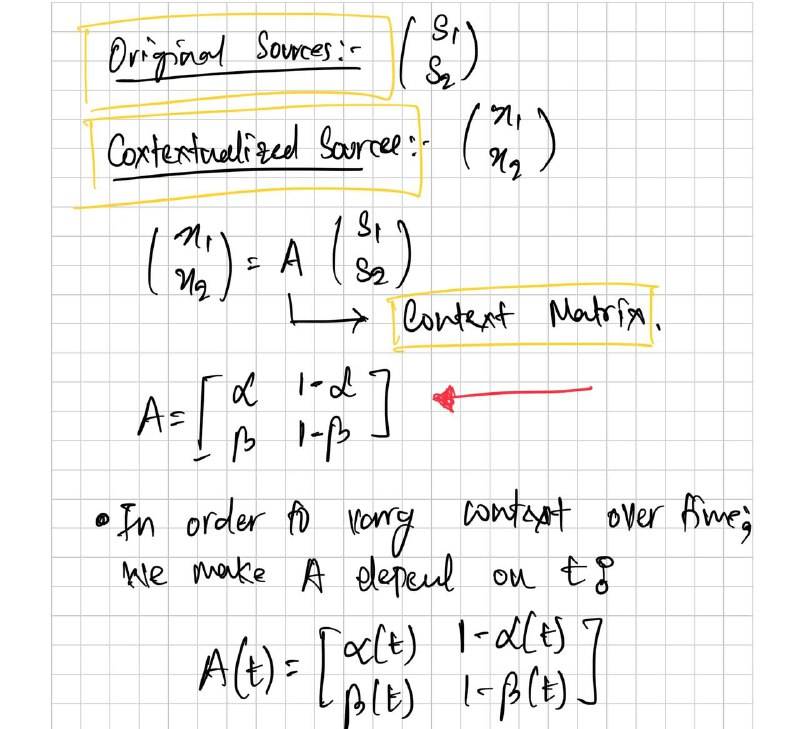 Original Sources:- (S1 S2)
Coxtextualized Sources:- (x1 x2)
(x1 x2) = A (S1 S2)
Context Matrix.
A = [α 1-α
β 1-β]
• In order to vary context over time;
we make A depend on t:
A(t) = [α(t) 1-α(t)
β(t) 1-β(t)]